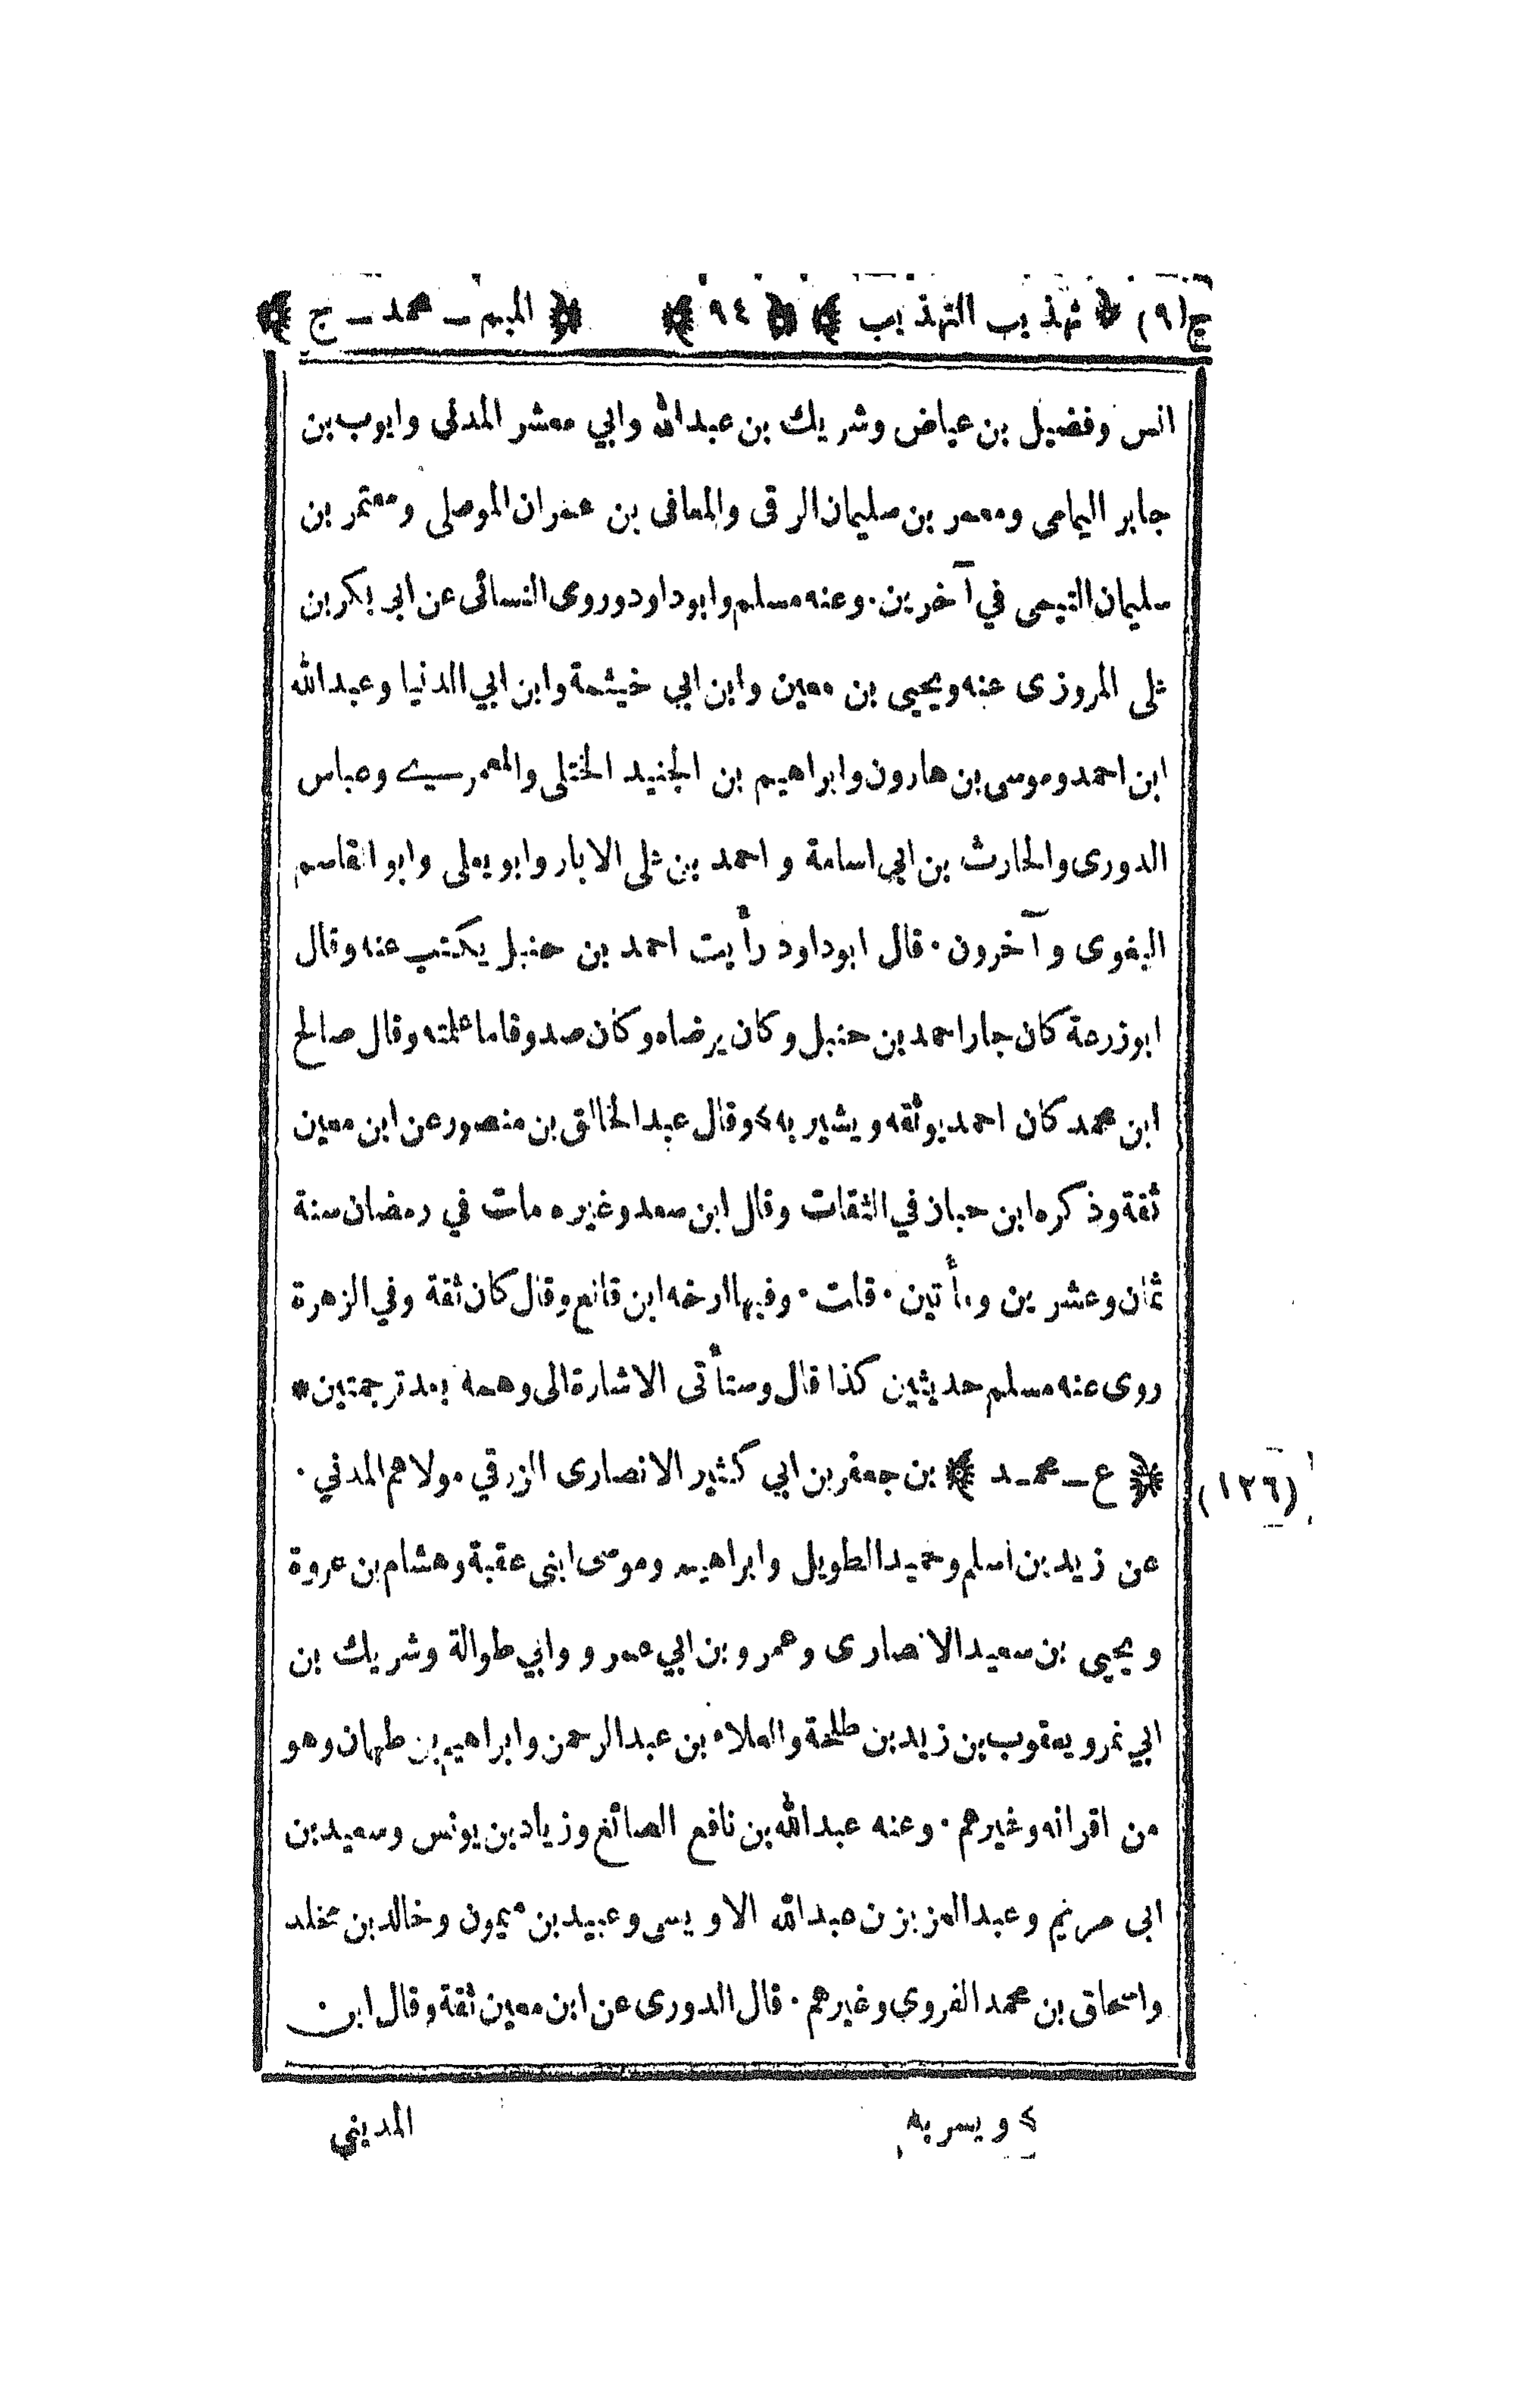 ج(٩) ﴿ تهذيب التهذيب ﴾ ﴿ ٩٤ ﴾ ﴿ الميم ـ محمد ـ ج ﴾
انس وفضيل بن عياض وشريك بن عبدالله وابي معشر المدني وايوب بن
جابر اليمامى ومعمر بن سليمان الرقى والمعافى بن عمران الموصلى ومعتمر بن
سليمان التيمى في آخرين · وعنه مسلم وابوداود وروى النسائى عن ابى بكر بن
على المروزى عنه ويحيى بن معين وابن ابي خيثمة وابن ابي الدنيا وعبدالله
ابن احمد وموسى بن هارون وابراهيم بن الجنيد الختلى والمعمرى وعباس
الدورى والحارث بن ابي اسامة و احمد بن على الابار وابو يعلى وابو القاسم
البغوى و آخرون · قال ابوداود رأيت احمد بن حنبل يكتب عنه وقال
ابوزرعة كان جار احمد بن حنبل وكان يرضاه وكان صدوقا ما علمته وقال صالح
ابن محمد كان احمد يوثقه ويشير به> وقال عبدالخالق بن منصور عن ابن معين
ثقة وذكره ابن حبان في الثقات وقال ابن سعد وغيره مات في رمضان سنة
ثمان وعشرين ومأتين · قلت · وفيها ارخه ابن قانع وقال كان ثقة وفي الزهرة
روى عنه مسلم حديثين كذا قال وستأتى الاشارة الى وهمه بعد ترجمتين *
(١٢٦) ﴿ ع ـ محمـد ﴾ بن جعفر بن ابي كثير الانصارى الزرقي مولاهم المدني ·
عن زيد بن اسلم وحميد الطويل وابراهيم وموسى ابنى عقبة وهشام بن عروة
ويحيى بن سعيد الانصارى وعمرو بن ابي عمرو وابي طوالة وشريك بن
ابي نمر ويعقوب بن زيد بن طلحة والعلاء بن عبدالرحمن وابراهيم بن طهمان وهو
من اقرانه وغيرهم · وعنه عبدالله بن نافع الصائغ وزياد بن يونس وسعيد بن
ابى مريم وعبد العزيز ن عبدالله الاويسى وعبيد بن ميمون وخالد بن مخلد
واسحاق بن محمد الفروي وغيرهم · قال الدورى عن ابن معين ثقة وقال ابن
> ويسر به
المديني